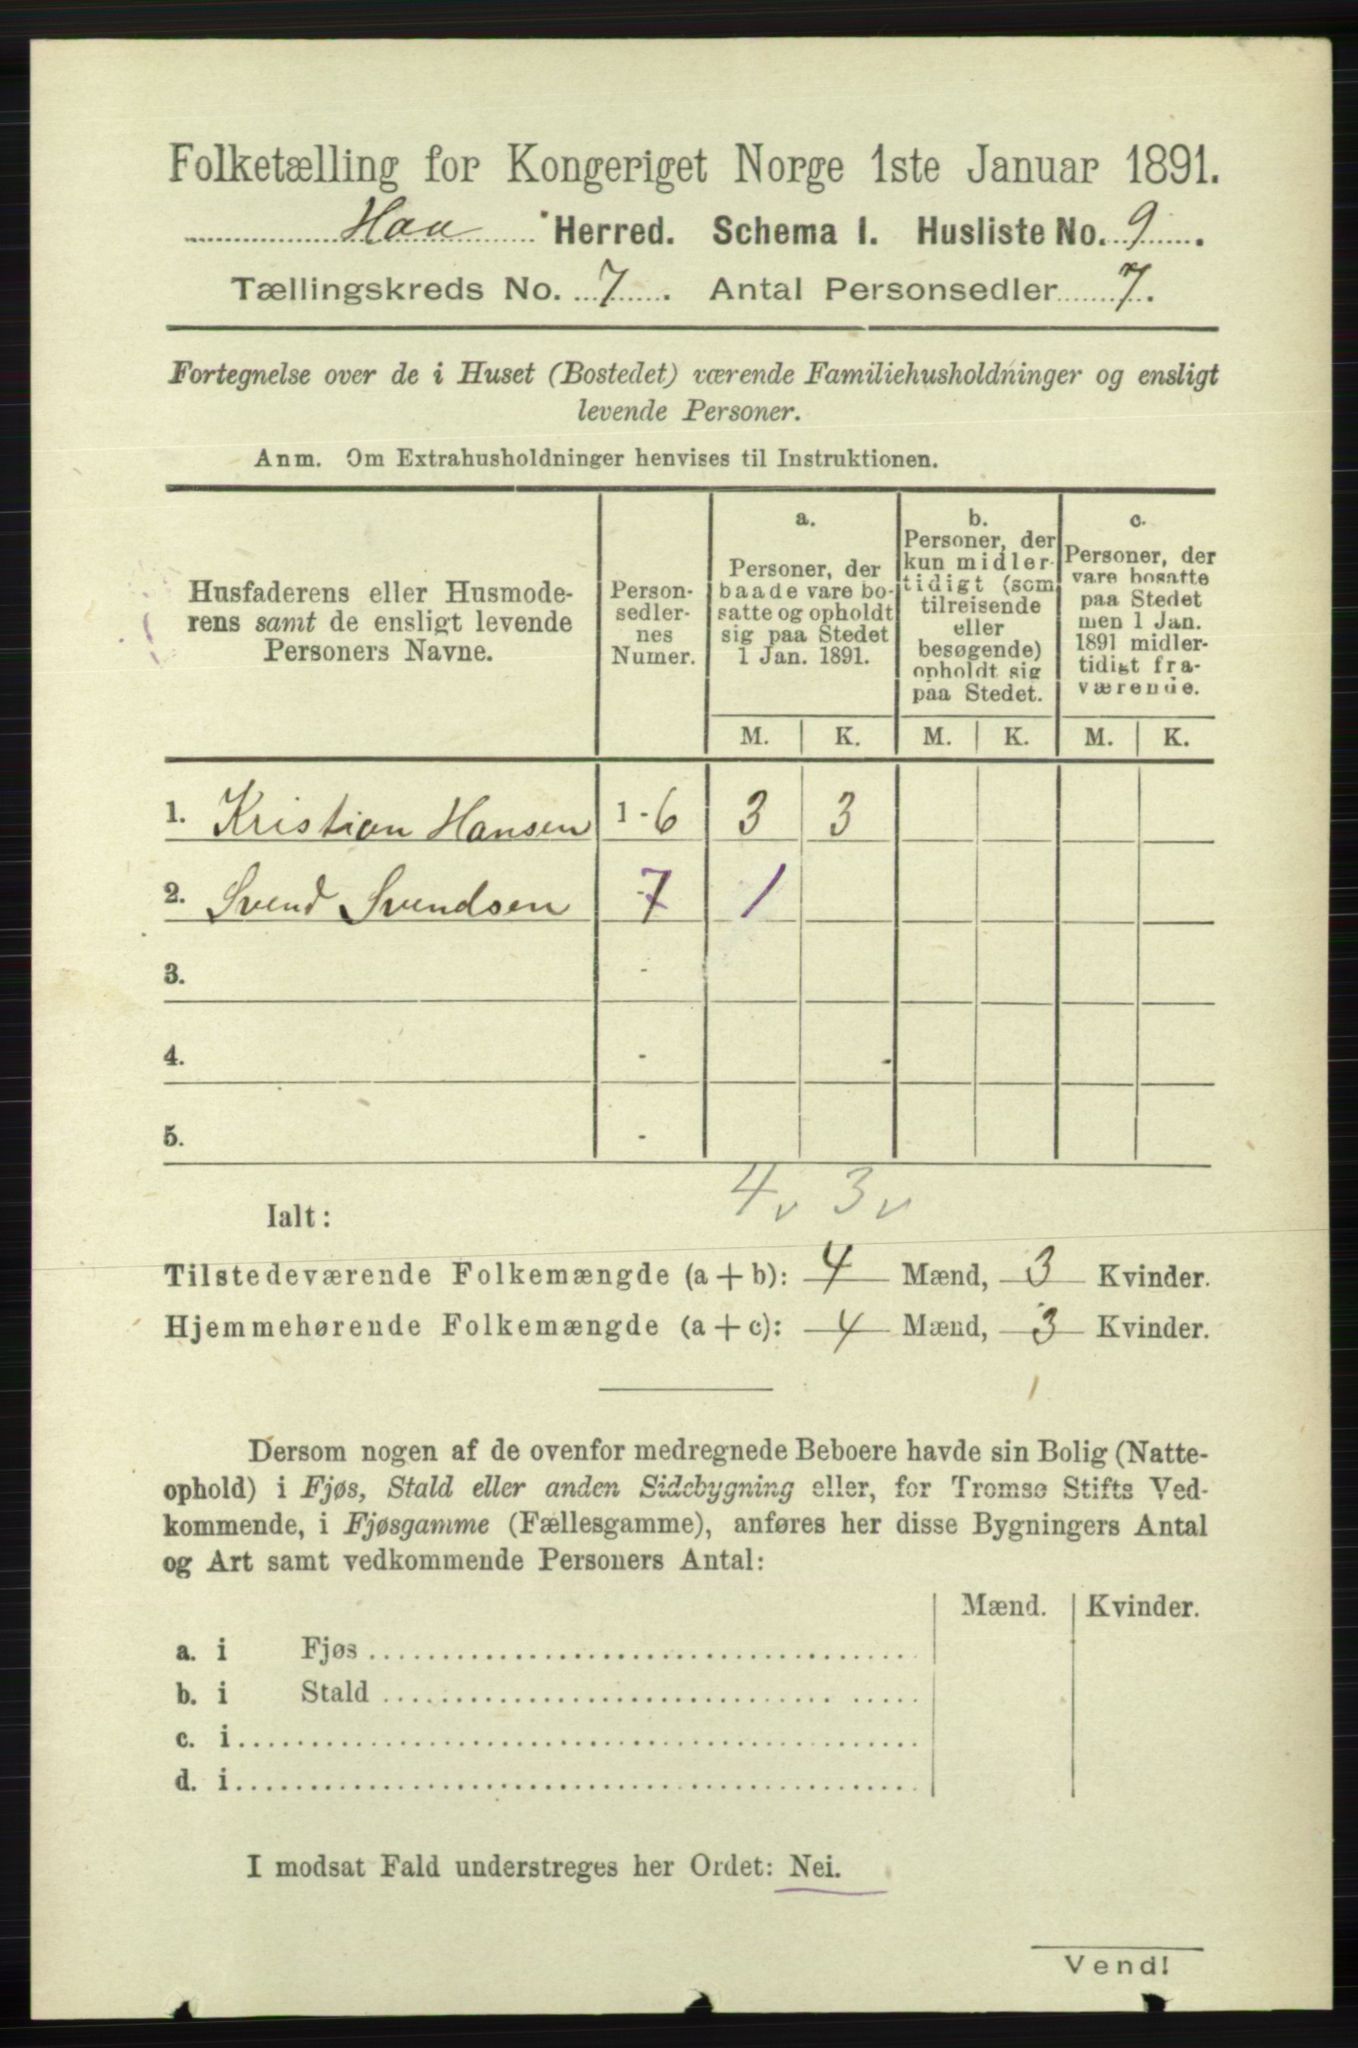 Folketælling for Kongeriget Norge 1ste Januar 1891.
Haa Herred. Schema I. Husliste No. 9.
Tællingskreds No. 7. Antal Personsedler 7.
Fortegnelse over de i Huset (Bostedet) værende Familiehusholdninger og ensligt
levende Personer.
Anm. Om Extrahusholdninger henvises til Instruktionen.
Husfaderens eller Husmode-
rens samt de ensligt levende
Personers Navne.
Person-
sedler-
nes
Numer.
a.
Personer, der
baade vare bo-
satte og opholdt
sig paa Stedet
1 Jan. 1891.
b.
Personer, der
kun midler-
tidigt (som
tilreisende
eller
besøgende)
opholdt sig
paa Stedet.
c.
Personer, der
vare bosatte
paa Stedet
men 1 Jan.
1891 midler-
tidigt fra-
værende.
M. K. M. K. M. K.
1. Kristian Hansen 1-6 3 3
2. Svend Svendsen -7 1
3. -
4. -
5. -
4 v 3 v
Ialt:
Tilstedeværende Folkemængde (a+b): 4 Mænd, 3 Kvinder.
Hjemmehørende Folkemængde (a+c): 4 Mænd, 3 Kvinder.
Dersom nogen af de ovenfor medregnede Beboere havde sin Bolig (Natte-
ophold) i Fjøs, Stald eller anden Sidebygning eller, for Tromsø Stifts Ved-
kommende, i Fjøsgamme (Fællesgamme), anføres her disse Bygningers Antal
og Art samt vedkommende Personers Antal:
Mænd. Kvinder.
a. i Fjøs
b. i Stald
c. i
d. i
I modsat Fald understreges her Ordet: Nei.
Vend!